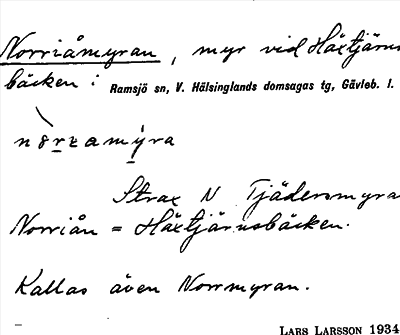 Norriåmyran, myr vid Häxtjärns
bäcken i Ramsjö sn, V. Hälsinglands domsagas tg, Gävleb. l.
Strax N Tjädermyra
Norriån = Häxtjärnsbäcken.
Kallas även Norrmyran.
LARS LARSSON 1934